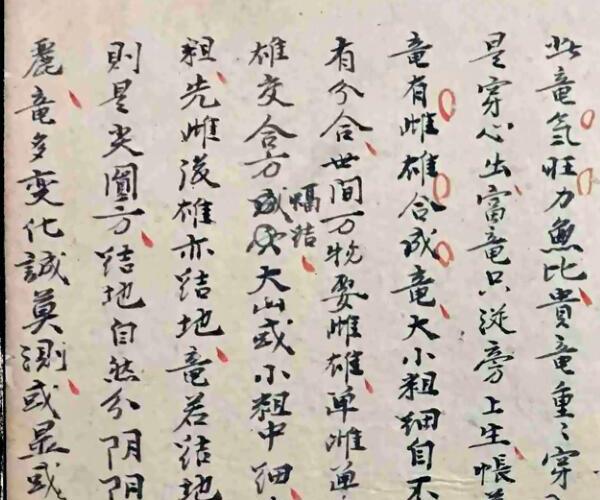 此竜氣旺力無比貴竜重〻穿
是穿心出富竜只従旁上生帳
竜有雌雄合成竜大小粗細自不
有分合世間万物娶雌雄单雌单
雄交合方成大山或小粗中细
幅结
粗先雌後雄亦結地竜若結地
則是尖圓方結地自然分阴阴
麗竜多变化誠莫測或显或